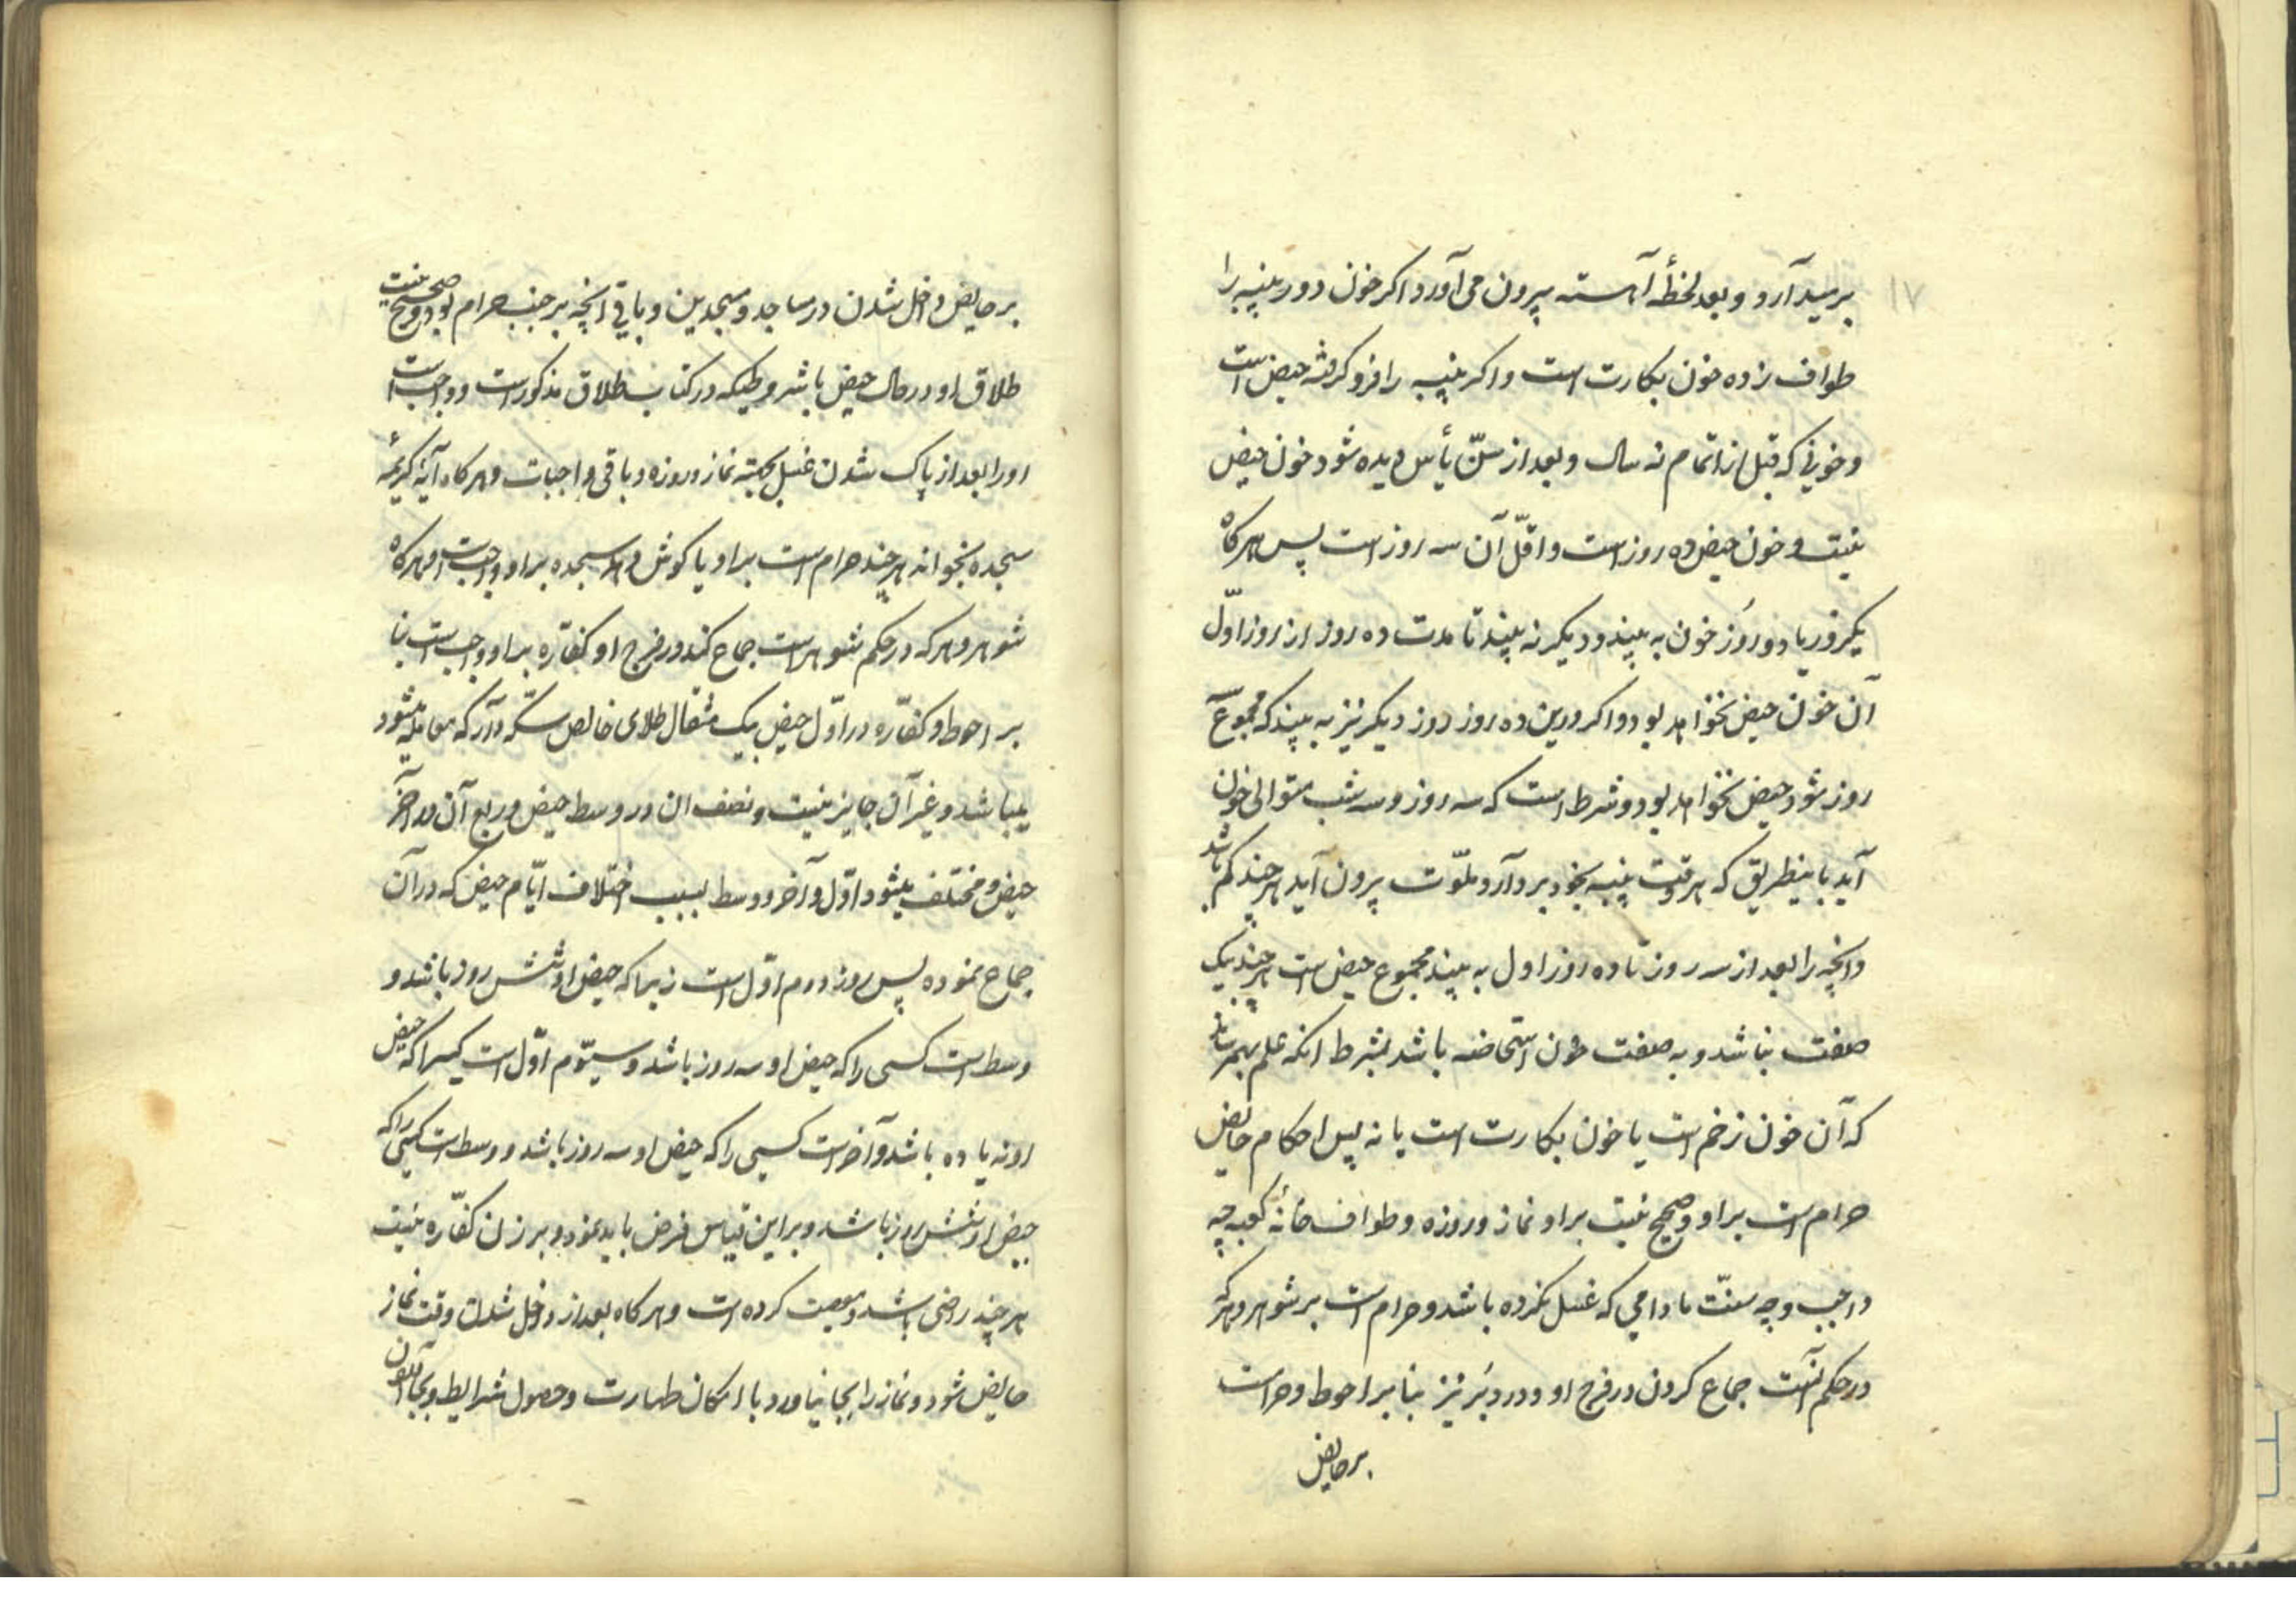 ۱۷
برمیدارد و بعد لحظهٔ آهسته بیرون می‌آورد اگر خون دور پنبه را
طواف زده خون بکارت است و اگر پنبه را فرو گرفته حیض است
و خونی که قبل از اتمام نه سال و بعد از سنّ یأس دیده شود خون حیض
نیست و خون حیض ده روز است و اقلّ آن سه روز است پس هرگاه
یکروز یا دو روز خون به بیند و دیگر نه بیند تا مدت ده روز از روز اوّل
آن خون حیض نخواهد بود و اگر درین ده روز روز دیگر نیز به بیند که مجموع
روز شود حیض نخواهد بود و شرط است که سه روز و سه شب متوالی خون
آید باینطریق که هر وقت پنبه بخود بردارد ملوّث بیرون آید هر چند کم باشد
و آنچه را بعد از سه روز تا ده روز اول به بیند مجموع حیض است هر چند بیک
صفت نباشد و به صفت خون استحاضه باشد بشرط انکه علم بهم نرساند
که آن خون زخم است یا خون بکارت است یا نه پس احکام حایض
حرام است بر او و صحیح نیست بر او نماز و روزه و طواف خانهٔ کعبه چه
واجب و چه سنّت مادامی که غسل نکرده باشد و حرام است بر شوهر و هر که
در حکم آنست جماع کردن در فرج او و در دبر نیز بنا بر احوط و حرام است
بر حایض
بر حایض داخل شدن در مساجد و مسجدین و باقی انچه بر جنب حرام بود و صحیح نیست
طلاق او در حال حیض باشروطیکه در کتاب طلاق مذکور است و واجب است
او را بعد از پاک شدن غسل بجهته نماز و روزه و باقی واجبات و هرگاه آیهٔ کریمهٔ
سجده بخواند هر چند حرام است بر او یا گوش دهد سجده بر او واجب است و هرگاه
شوهر و هر که در حکم شوهر است جماع کند در فرج او کفّاره بر او واجب است بنا
بر احوط و کفّاره در اوّل حیض بیک مثقال طلای خالص سکّه دار که معامله میشود
میباشد و غیر آن جایز نیست و نصف ان در وسط حیض و ربع آن در آخر
حیض و مختلف میشود اوّل و آخر و وسط بسبب اختلاف ایّام حیض که در آن
جماع نموده پس روز دوم اوّل است زنیرا که حیض او شش روز باشد و
وسط است کسی را که حیض او سه روز باشد و سیّوم اوّل است کسیرا که حیض
او نه یا ده باشد و آخر است کسی را که حیض او سه روز باشد و وسط است کسی را که
حیض او شش روز باشد و بر این قیاس فرض باید نمود و بر زن کفّاره نیست
هر چند راضی باشد و معصیت کرده است و هرگاه بعد از داخل شدن وقت نماز
حایض شود و نماز را بجا نیاورد با امکان طهارت و حصول شرایط و بجا آوردن